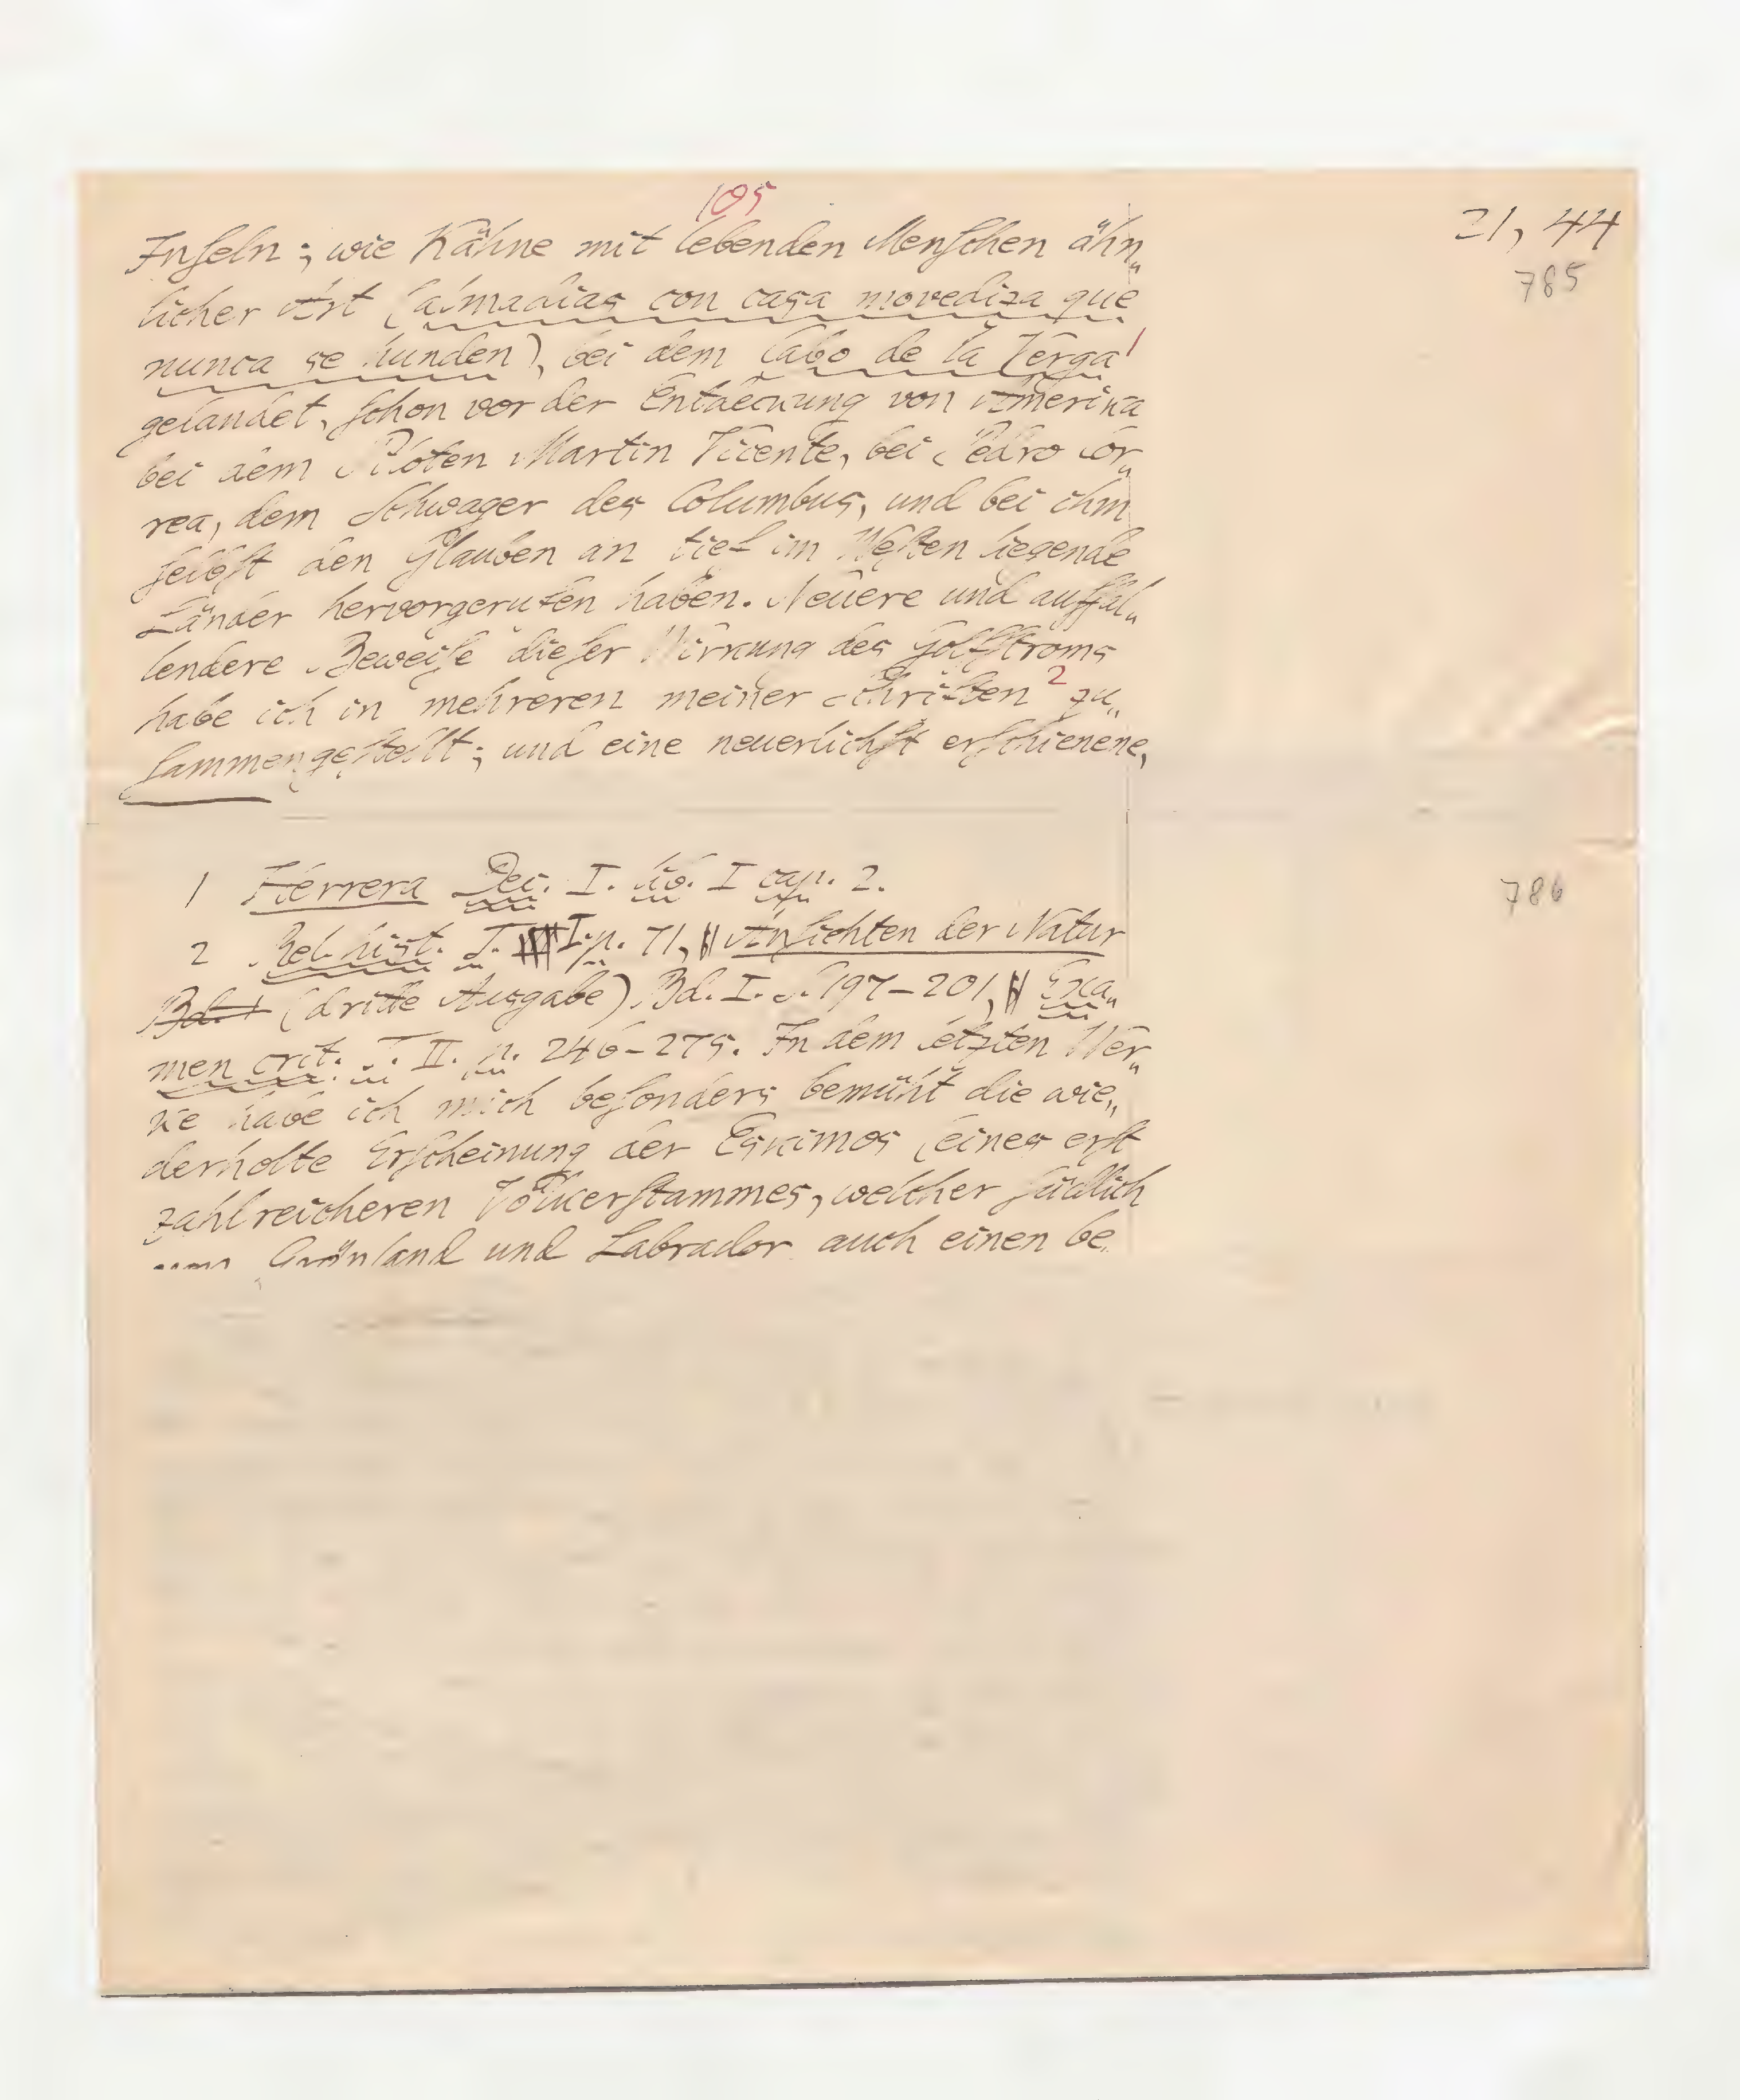 105
21, 44
785
Inſeln; wie Kähne mit lebenden Menſchen ähn„
licher Art (almadias con casa movediza que
nunca se hunden), bei dem Cabo de la Verga 1
gelandet, ſchon vor der Entdeckung von Amerika
bei dem Piloten Martin Vicente, bei Pedro Cor„
rea, dem Schwager des Columbus, und bei ihm
ſelbſt den Glauben an tief im Weſten liegende
Länder hervorgerufen haben. Neuere und auffal„
lendere Beweiſe dieſer Wirkung des Golfſtroms
habe ich in mehreren meiner Schriften 2 zu„
ſammengeſtellt; und eine neuerlichſt erſchienene,
1 Herrera Dec. I. lib. I cap. 2.
786
2 Rel. hist. T. I. p. 71, Anſichten der Natur
Bd. I (dritte Ausgabe) Bd. I. S. 197–201, Exa„
men crit. T. II. p. 246–275. In dem letzten Wer„
ke habe ich mich beſonders bemüht die wie„
derholte Erſcheinung der Eskimos (eines erſt
zahlreicheren Völkerſtammes, welcher ſüdlich
von Grönland und Labrador auch einen be„